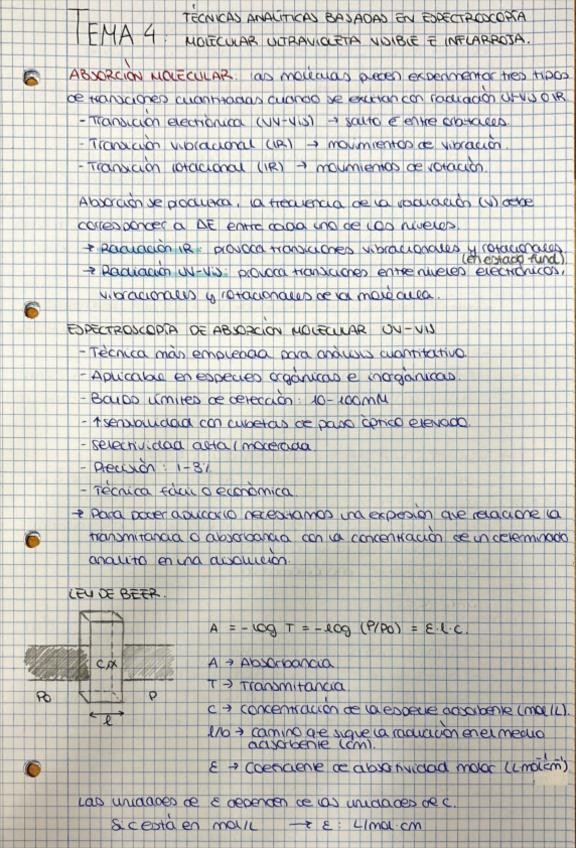 TEMA 4: TÉCNICAS ANALÍTICAS BASADAS EN ESPECTROSCOPÍA
MOLECULAR ULTRAVIOLETA VISIBLE E INFLARROJA.
ABSORCIÓN MOLECULAR: las moléculas pueden experimentar tres tipos
de transiciones cuantizadas cuando se excitan con radiación UV-VIS O IR.
- Transición electrónica (UV-VIS) → salto e⁻ entre orbitales.
- Transición vibracional (IR) → movimientos de vibración.
- Transición rotacional (IR) → movimientos de rotación.
Absorción se produzca, la frecuencia de la radiación (ν) debe
corresponder a ΔE entre cada uno de los niveles.
→ Radiación IR: provoca transiciones vibracionales y rotacionales
(en estado fund.)
→ Radiación UV-VIS: provoca transiciones entre niveles electrónicos,
vibracionales y rotacionales de la molécula.
ESPECTROSCOPÍA DE ABSORCIÓN MOLECULAR UV-VIS
- Técnica más empleada para análisis cuantitativo.
- Aplicable en especies orgánicas e inorgánicas.
- Bajos límites de detección: 10-100mM
- ↑ sensibilidad con cubetas de paso óptico elevado.
- Selectividad alta/moderada
- Precisión: 1-3%
- Técnica fácil o económica.
→ Para poder aplicarlo necesitamos una expresión que relacione la
transmitancia o absorbancia con la concentración de un determinado
analito en una disolución.
LEY DE BEER.
A = -log T = -log (P/P0) = ε·l·c.
C,α
P0
P
l
A → Absorbancia
T → Transmitancia
C → concentración de la especie adsorbente (mol/L).
l/b → camino que sigue la radiación en el medio
adsorbente (cm).
ε → coeficiente de absortividad molar (L mol⁻¹ cm⁻¹)
Las unidades de ε dependen de las unidades de c.
Si c está en mol/L → ε: L/mol·cm